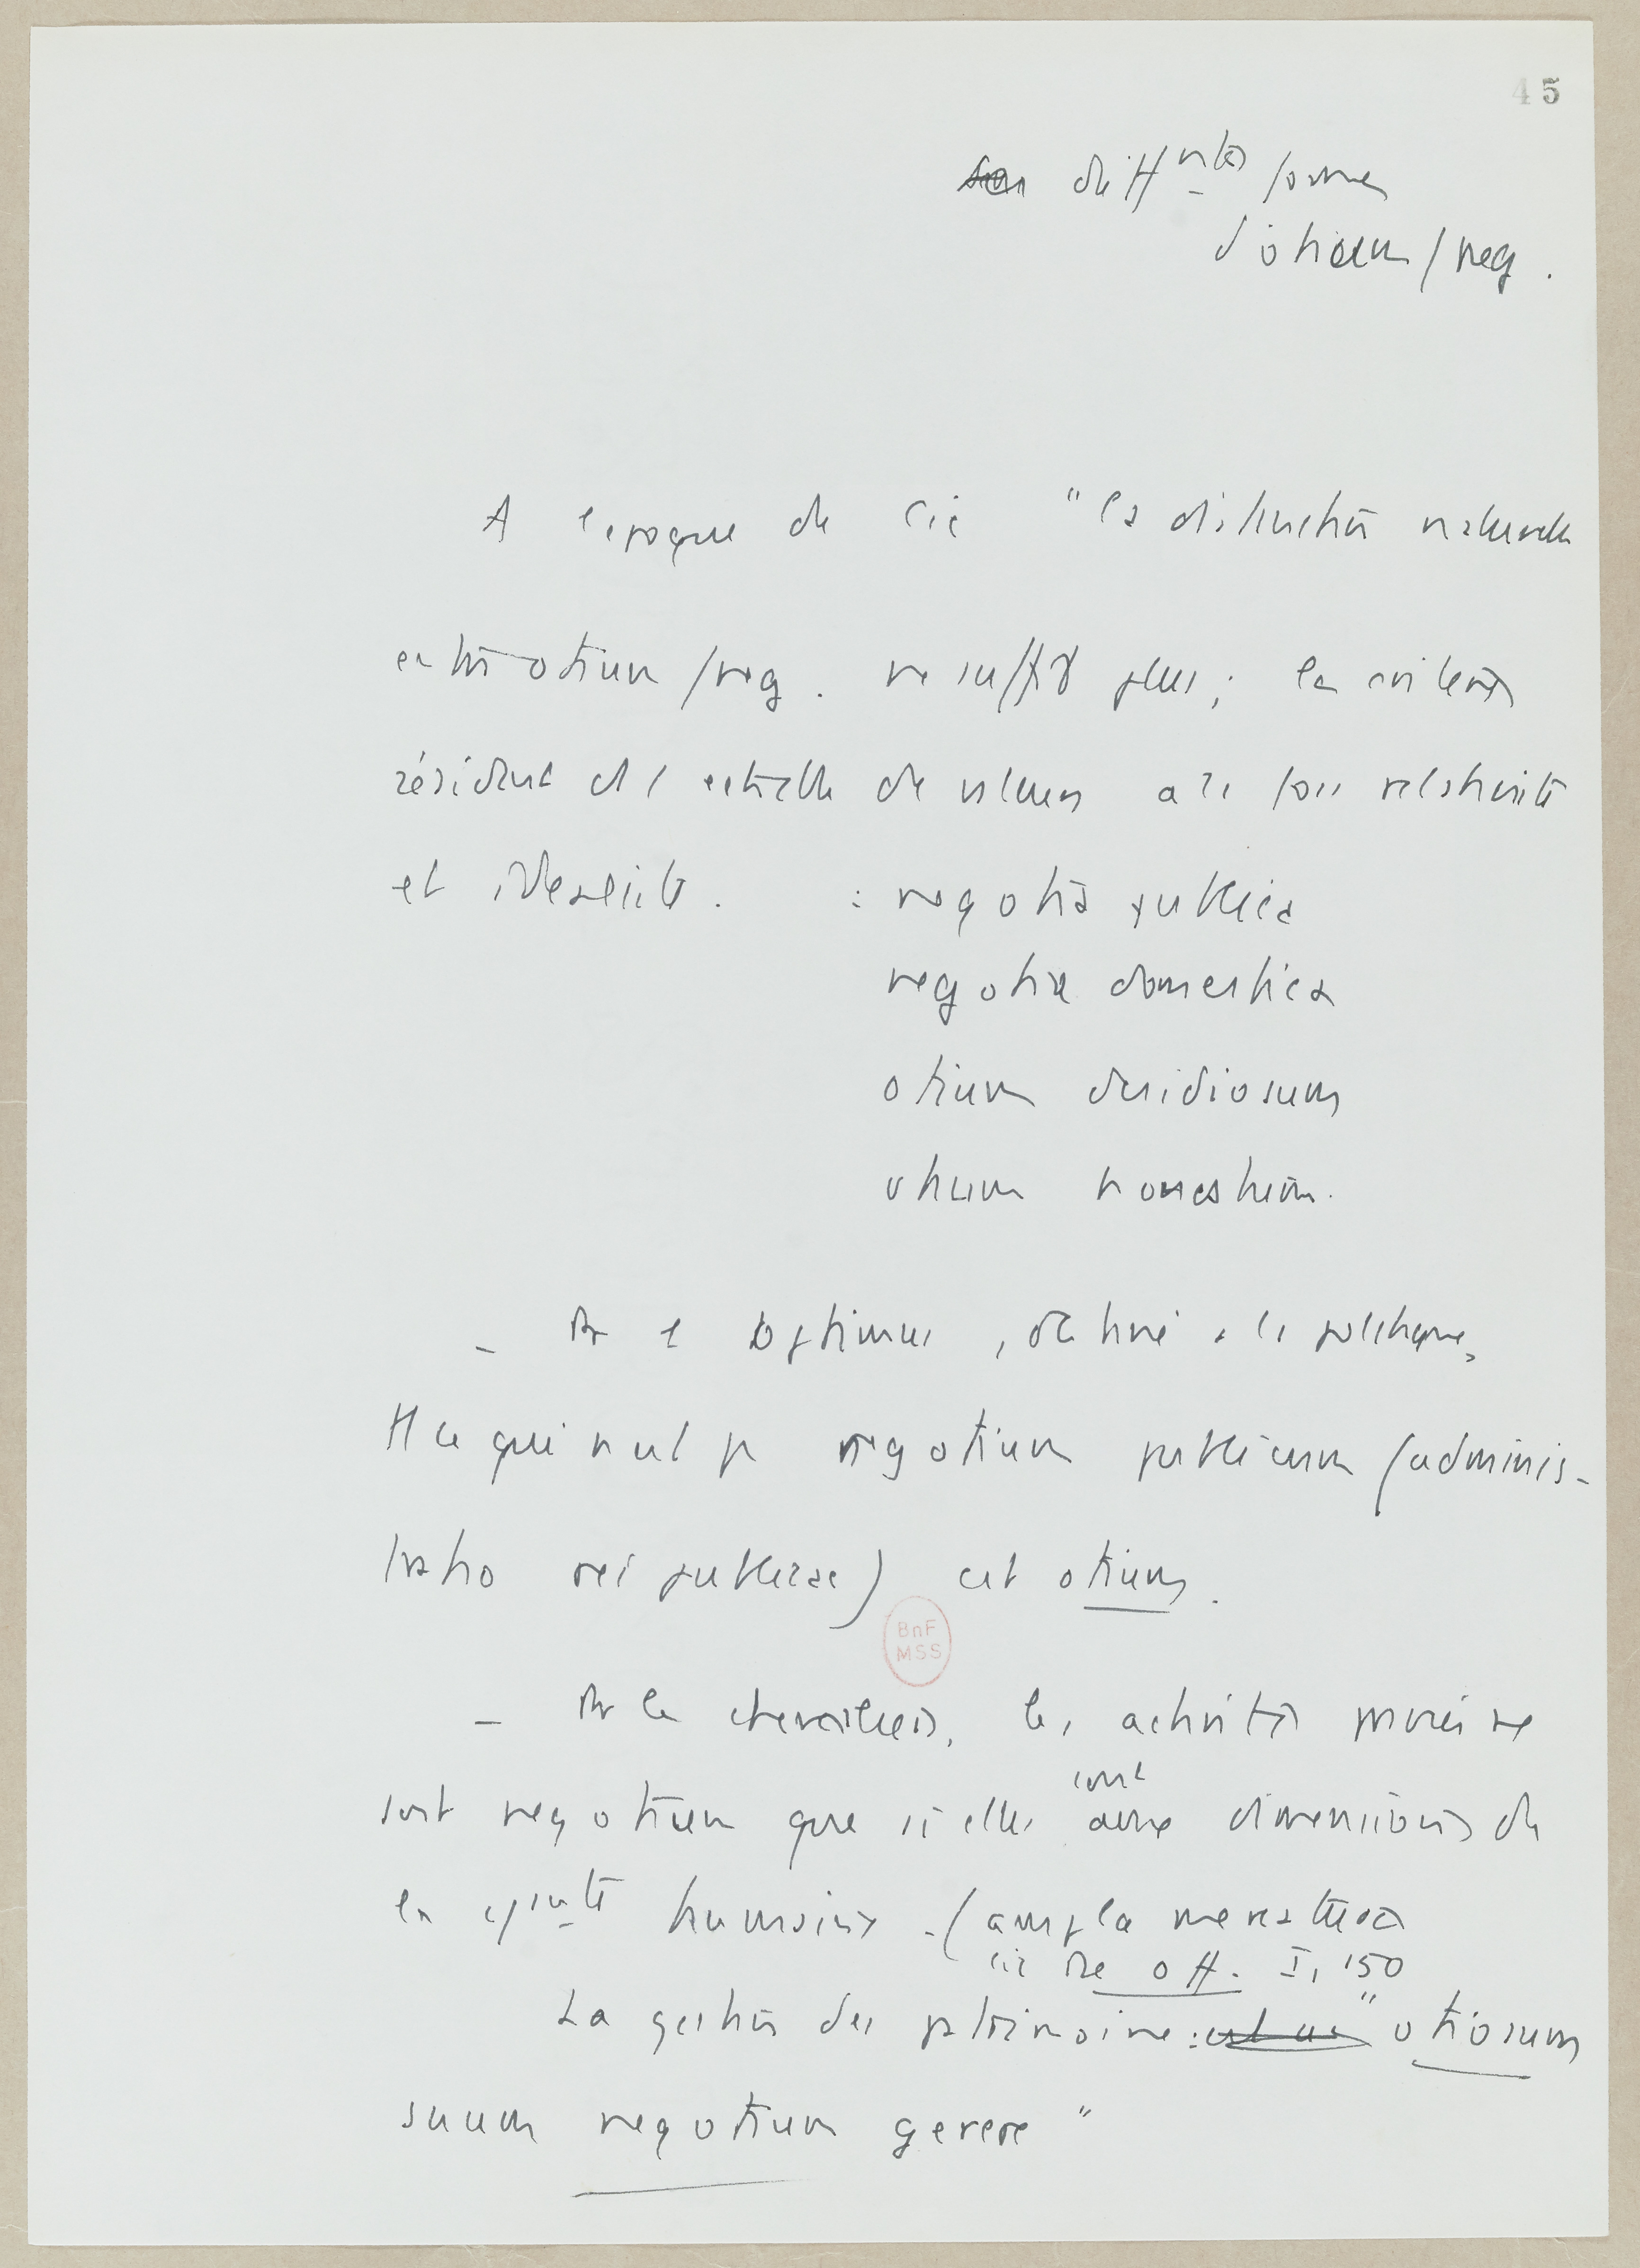 45
diffntes formes
d'otium / neg.
A l'époque de Cic "la distinction naturelle
entre otium / neg. ne suffit plus; les critères
résident ds l'échelle de valeurs avec sa relativité
et : negotia publica
negotia domestica
otium desidiosum
otium honestum.
- Pr l' optimus, destiné à la politique,
tt ce qui n'est pas negotium publicum (adminis-
tratio rei publicae) est otium.
BnF
MSS
- Pr les chevaliers, les activités privées ne
sont negotium que si elles sont aux dimensions de
la cynté humaine. (ampla mercatura
Cic De off. I, 150
La gestion des patrimoine : "otiosum
suum negotium gerere"